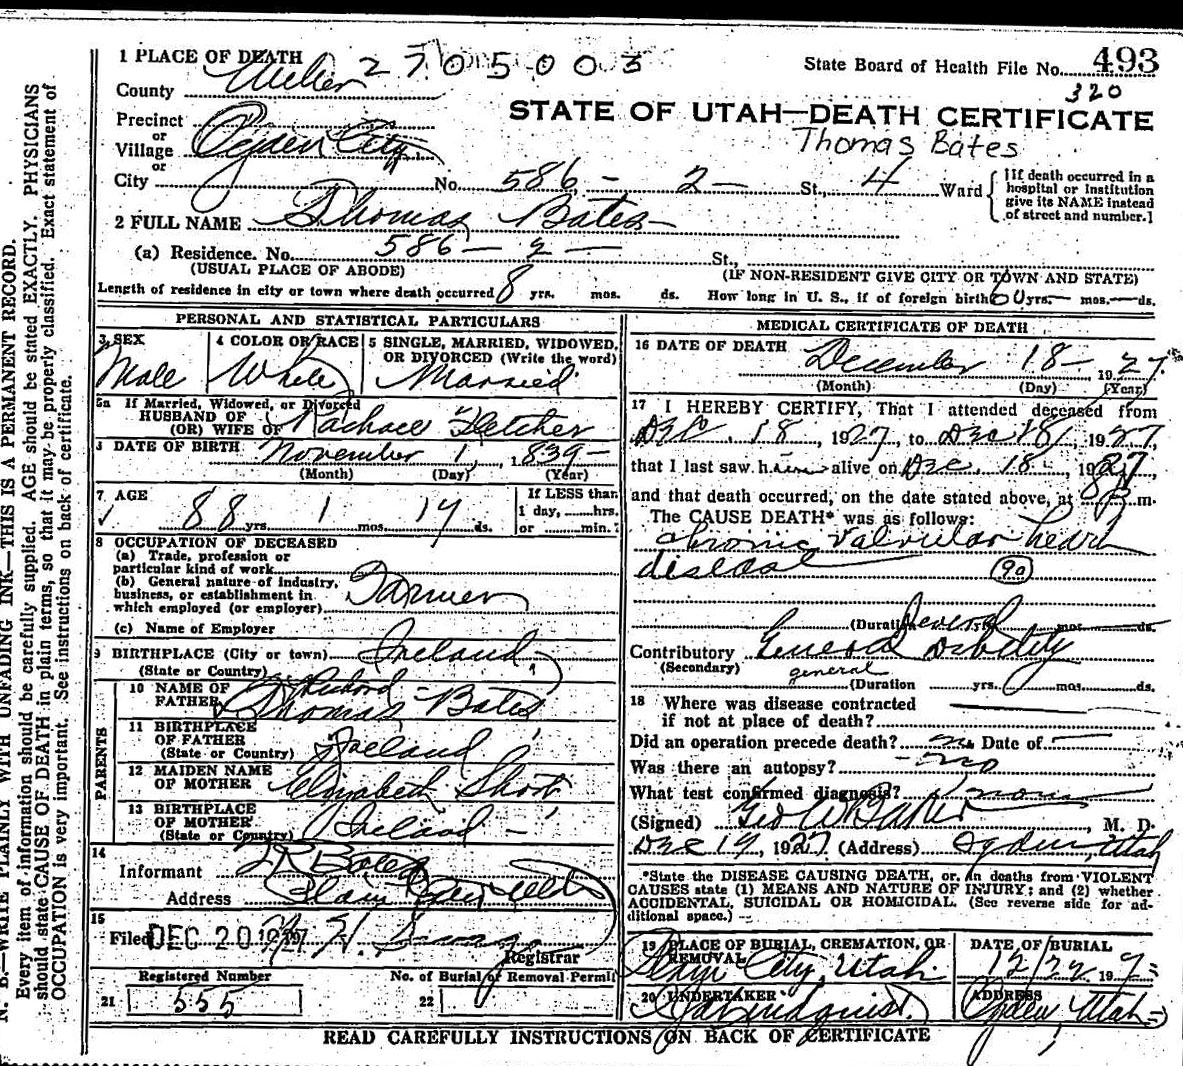 1 PLACE OF DEATH 2705003
State Board of Health File No. 493
County Weber 320
STATE OF UTAH—DEATH CERTIFICATE
Precinct
or
Village Ogden City
Thomas Bates
or
City No. 586 - 2 - St., 4 Ward
[If death occurred in a hospital or institution give its NAME instead of street and number.]
2 FULL NAME Thomas Bates
(a) Residence. No. 586 - 2 - St.,
(USUAL PLACE OF ABODE) (IF NON-RESIDENT GIVE CITY OR TOWN AND STATE)
Length of residence in city or town where death occurred 8 yrs. mos. ds. How long in U. S., if of foreign birth 60 yrs. — mos. — ds.
PERSONAL AND STATISTICAL PARTICULARS
3 SEX
Male
4 COLOR OR RACE
White
5 SINGLE, MARRIED, WIDOWED, OR DIVORCED (Write the word)
Married
5a If Married, Widowed, or Divorced
HUSBAND OF
(OR) WIFE OF Rachael Fletcher
DATE OF BIRTH November 1, 1839 -
(Month) (Day) (Year)
7 AGE
88 yrs. 1 mos. 17 ds.
If LESS than
1 day, hrs.
or min.
8 OCCUPATION OF DECEASED
(a) Trade, profession or
particular kind of work
(b) General nature of industry,
business, or establishment in
which employed (or employer) Farmer
(c) Name of Employer
9 BIRTHPLACE (City or town) Ireland
(State or Country)
PARENTS
10 NAME OF
FATHER Richard
Thomas Bates
11 BIRTHPLACE
OF FATHER
(State or Country) Ireland
12 MAIDEN NAME
OF MOTHER Elizabeth
13 BIRTHPLACE
OF MOTHER
(State or Country) Ireland -
14
Informant Bates
Address Plain City Utah
15
Filed DEC 20 1927
Registrar
Registered Number
21 555
No. of Burial or Removal Permit
22
MEDICAL CERTIFICATE OF DEATH
16 DATE OF DEATH December 18 - 1927
(Month) (Day) (Year)
17 I HEREBY CERTIFY, That I attended deceased from
Dec. 18, 1927, to Dec 18, 1927,
that I last saw him alive on Dec. 18, 1927,
and that death occurred, on the date stated above, at 8 P. m.
The CAUSE DEATH* was as follows:
chronic valvular heart
disease (90)
(Duration several yrs. mos. ds.
Contributory General Debility
(Secondary) general
(Duration yrs. mos. ds.
18 Where was disease contracted
if not at place of death?
Did an operation precede death? no Date of —
Was there an autopsy? - no
What test confirmed diagnosis?
(Signed) Geo W Baker, M. D.
Dec 19, 1927 (Address) Ogden, Utah
*State the DISEASE CAUSING DEATH, or, in deaths from VIOLENT
CAUSES state (1) MEANS AND NATURE OF INJURY; and (2) whether
ACCIDENTAL, SUICIDAL OR HOMICIDAL. (See reverse side for ad-
ditional space.)
19 PLACE OF BURIAL, CREMATION, OR
REMOVAL
City, Utah.
DATE OF BURIAL
12/22 1927
20 UNDERTAKER
Lindquist.
ADDRESS
Ogden, Utah
READ CAREFULLY INSTRUCTIONS ON BACK OF CERTIFICATE
N. B.—WRITE PLAINLY WITH UNFADING INK—THIS IS A PERMANENT RECORD.
Every item of information should be carefully supplied. AGE should be stated EXACTLY. PHYSICIANS
should state CAUSE OF DEATH in plain terms, so that it may be properly classified. Exact statement of
OCCUPATION is very important. See instructions on back of certificate.